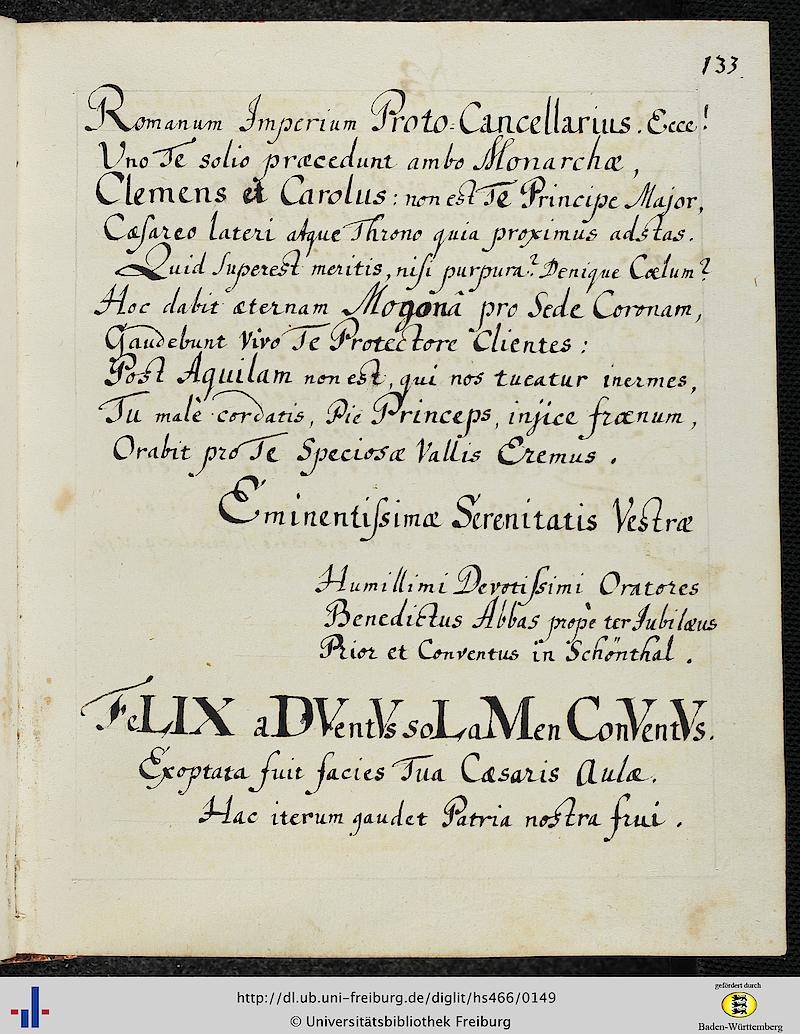 133.
Romanum Imperium Proto-Cancellarius. Ecce!
Uno Te solio præcedunt ambo Monarchæ,
Clemens et Carolus: non est Te Principe Major,
Cæſareo lateri atque Throno quia proximus adstas.
Quid ſuperest meritis, niſi purpura? Denique Cœlum?
Hoc dabit æternam Mogonâ pro Sede Coronam,
Gaudebunt vivo Te Protectore Clientes:
Post Aquilam non est, qui nos tueatur inermes,
Tu malè cordatis, Pie Princeps, injice frænum,
Orabit pro Te Speciosæ Vallis Eremus.
Eminentiſsimæ Serenitatis Vestræ
Humillimi Devotiſsimi Oratores
Benedictus Abbas propè ter Jubilæus
Prior et Conventus in Schönthal.
FeLIX aDVentVs soLaMen ConVentVs.
Exoptata fuit facies Tua Cæsaris Aulæ.
Hac iterum gaudet Patria nostra frui.
http://dl.ub.uni-freiburg.de/diglit/hs466/0149
© Universitätsbibliothek Freiburg
gefördert durch
Baden-Württemberg